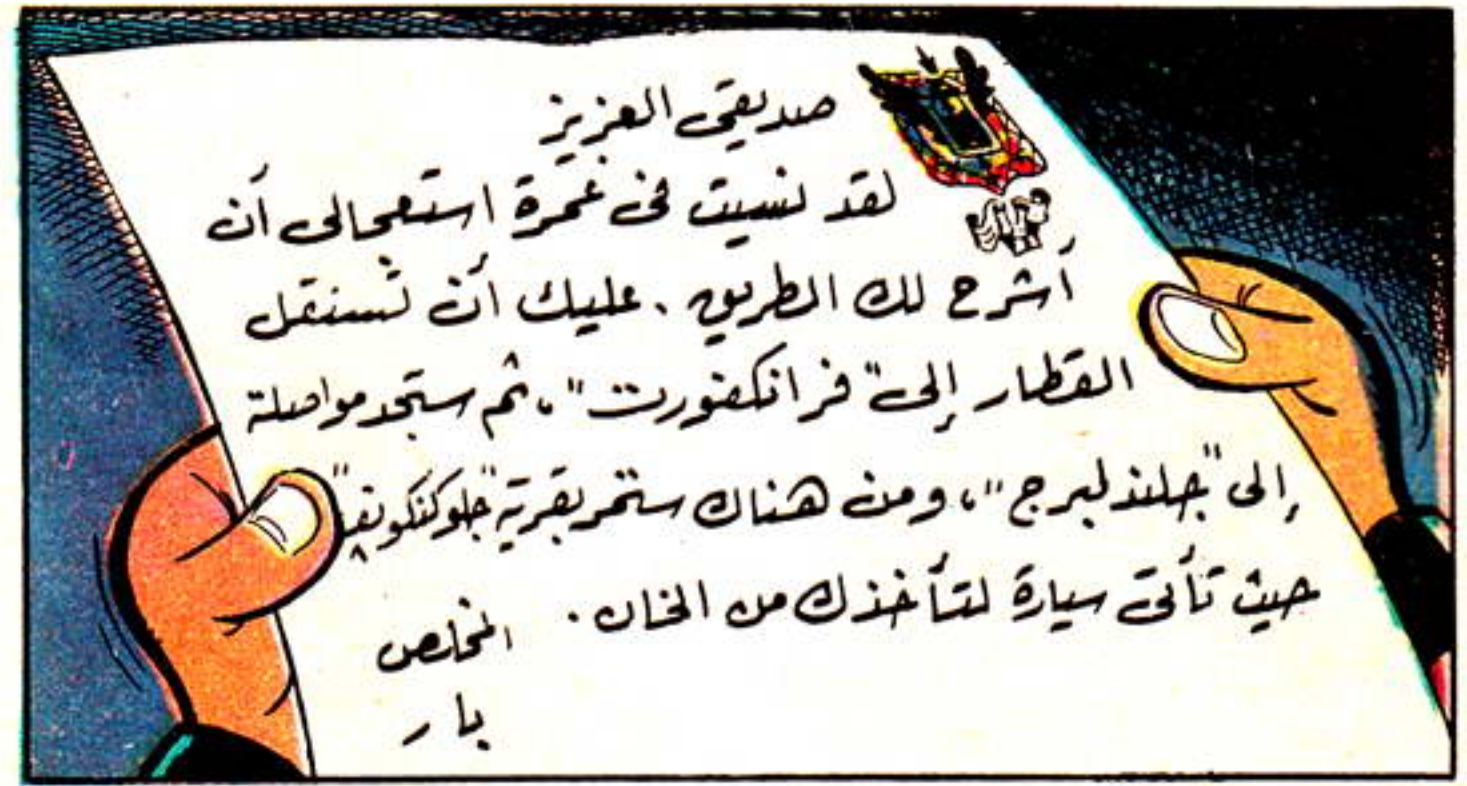 صديقي العزيز
لقد نسيت في غمرة استعجالي أن
أشرح لك الطريق. عليك أن تستقل
القطار إلى "فرانكفورت"، ثم ستجد مواصلة
إلى "جلندلبرج"، ومن هناك ستمر بقرية
حيث تأتي سيارة لتأخذك من الخان.
المخلص
بار